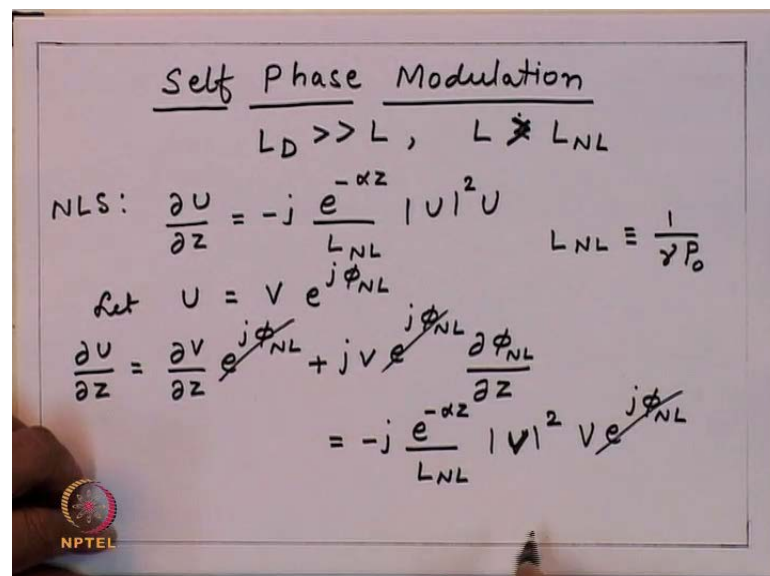 Self Phase Modulation
L_D >> L , L > L_NL
NLS: ∂U/∂z = -j e^{-αz}/L_NL |U|² U L_NL ≡ 1/γP₀
Let U = V e^{jφ_NL}
∂U/∂z = ∂V/∂z e^{jφ_NL} + j V e^{jφ_NL} ∂φ_NL/∂z
= -j e^{-αz}/L_NL |V|² V e^{jφ_NL}
NPTEL